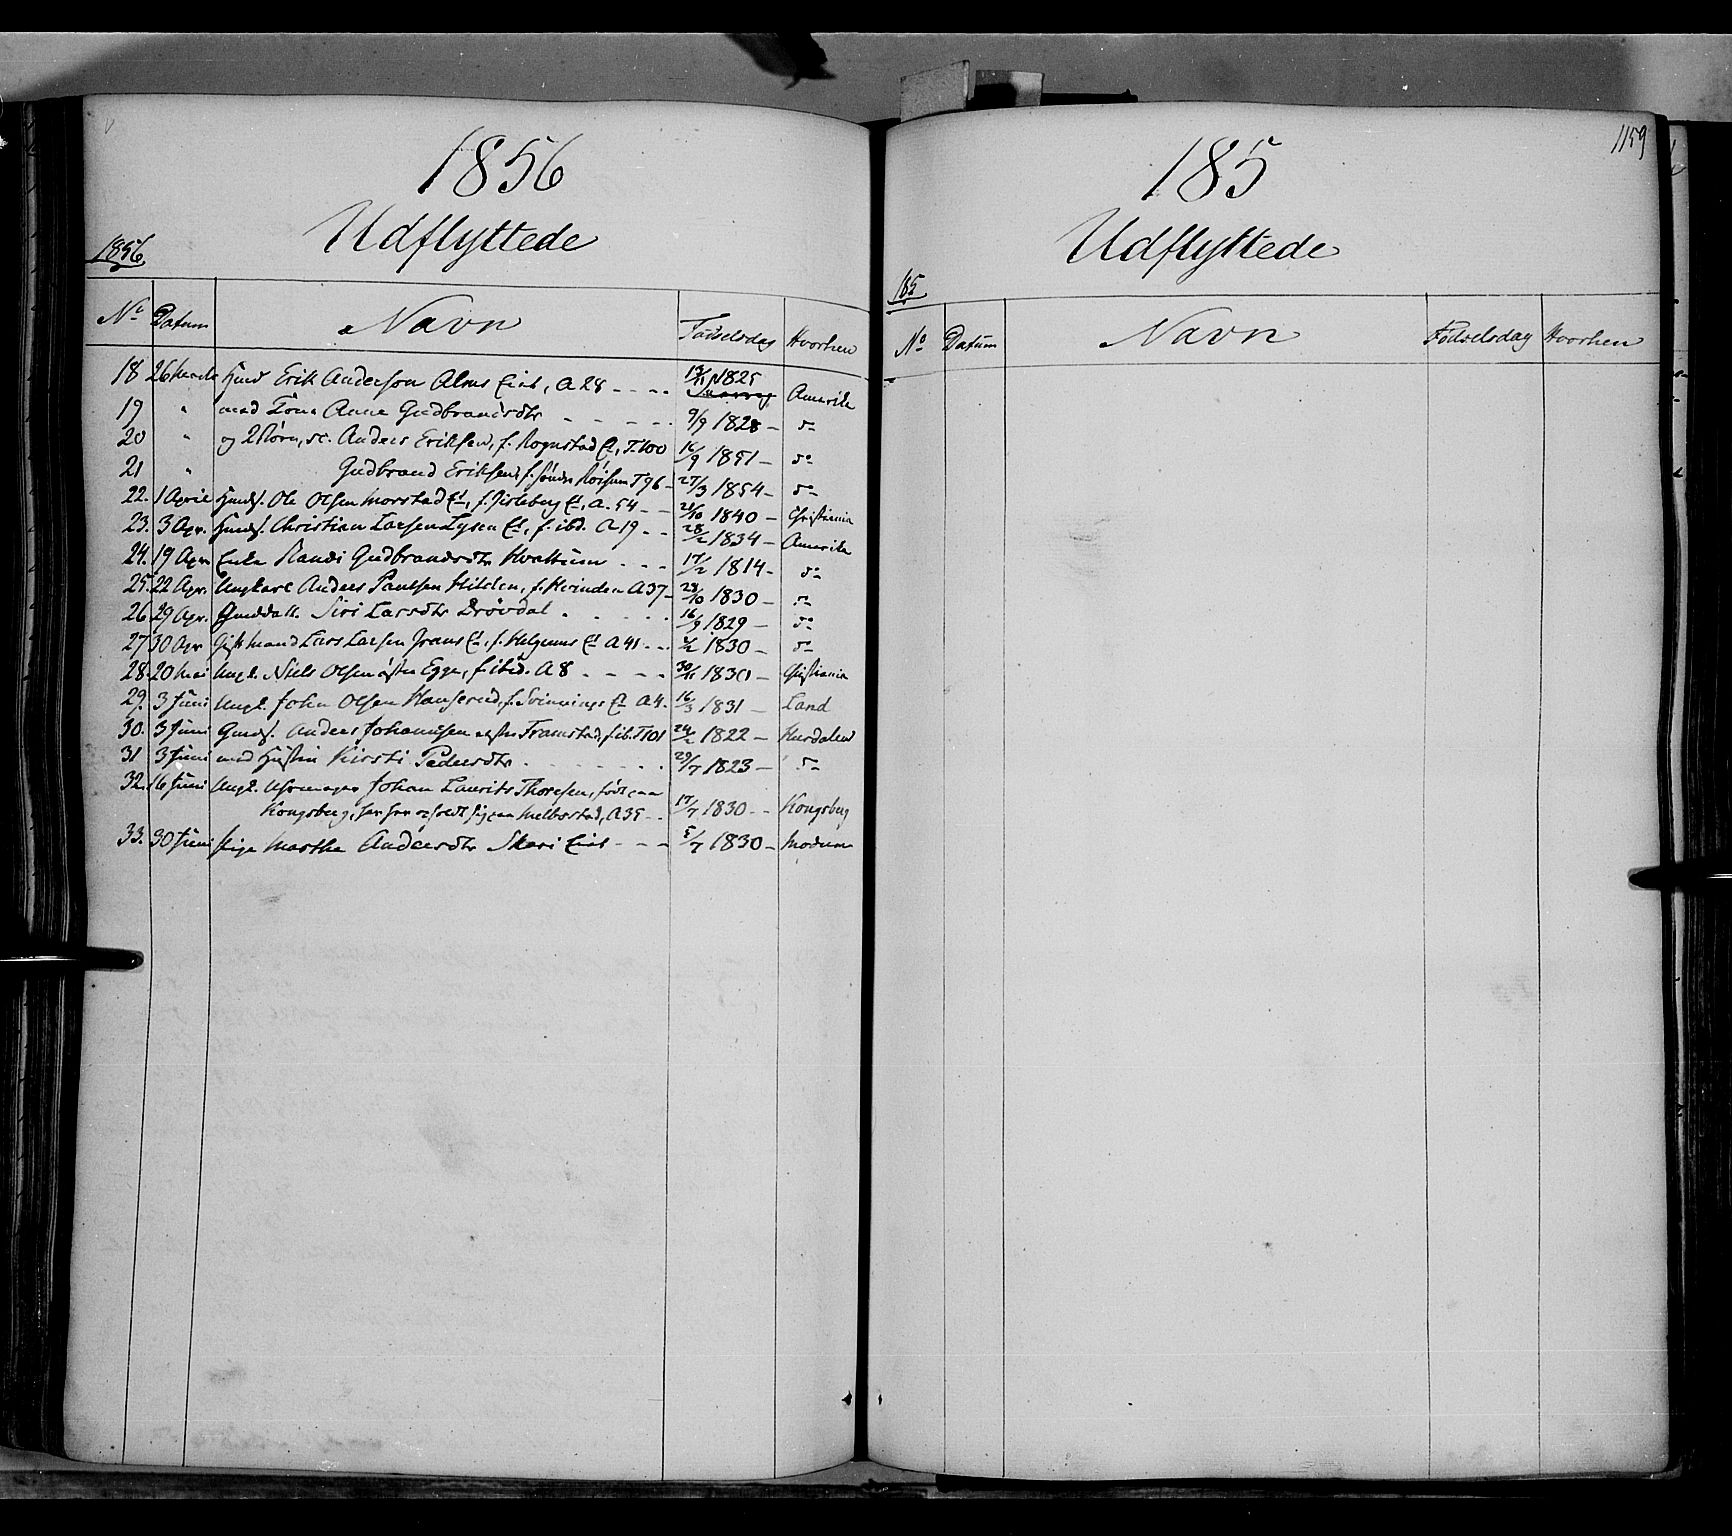 1856
Udflyttede
1856
No Datum Navn Fødselsdag Hvorhen
18 26 Erik Anderson Alms Eiet, A 28 13/11 1825 Amerika
19 " med Anne Gudbrandsdtr 9/9 1828 do
20 " og 2 Børn, sc. Anders Eriksen, f. Rognstad Et, T.100 16/9 1851 do
21 " Gudbrand Eriksen, f. søndre Røisum T 96 27/3 1854 do
22. 1 April Ole Olsen Morstad Et, f. Et, A. 54 1840 Christiania
23. 3 Apr. Christian Larsen Lysen Et, f. ibd. A 19 28/2 1834 Amerika
24. 19 Apr Enke Randi Gudbrandsdtr Hvattum 17/2 1814 do
25. 22 Apr. Ungkarl Anders Paulsen Hilden, f. A 37 28/10 1830 do
26 29 Apr. Siri Larsdtr Drøvdal 16/9 1829 do
27 30 Apr Gift Mand Lars Larsen Grans Et, f. Helgums Et A 41 1830 do
28. 20 Mai Ungk. Niels Olsen østen Egge, f. ibid. A 8 30/11 1830 Christiania
29. 3 Juni Ungk. John Olsen f. Et A 4. 16/3 1831 Land
30. 3 Juni Anders Johannesen Framstad, f. ib. T 101 24/2 1822 Hurdalen
31 3 Juni med Hustru Kirsti Pedersdtr 29/7 1823 do
32. 16 Juni Ungk. Johan Laurits Thoresen, født paa
Kongsberg, har her opholdt sig paa Melbostad, A 35 17/7 1830 Kongsberg
33. 30 Juni Pige Marthe Andersdtr Skari Eiet 5/7 1830 Modum
1159
185
Udflyttede
185
No Datum Navn Fødselsdag Hvorhen